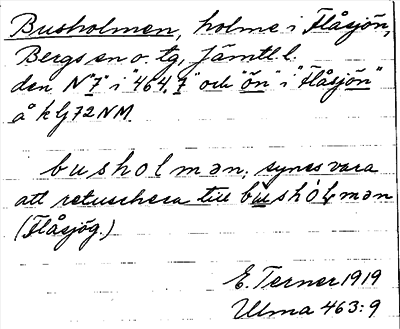 Busholmen, holme i Flåsjön,
Bergs sn o. tg, Jämtl. l.
den N "7" i "464,7" och "ön" i "Flåsjön"
å k bl 72 NM.
busholmən, synes vara
att retuschera till busholmən
(Flåsjög.)
E. Terner 1919
Ulma 463:9